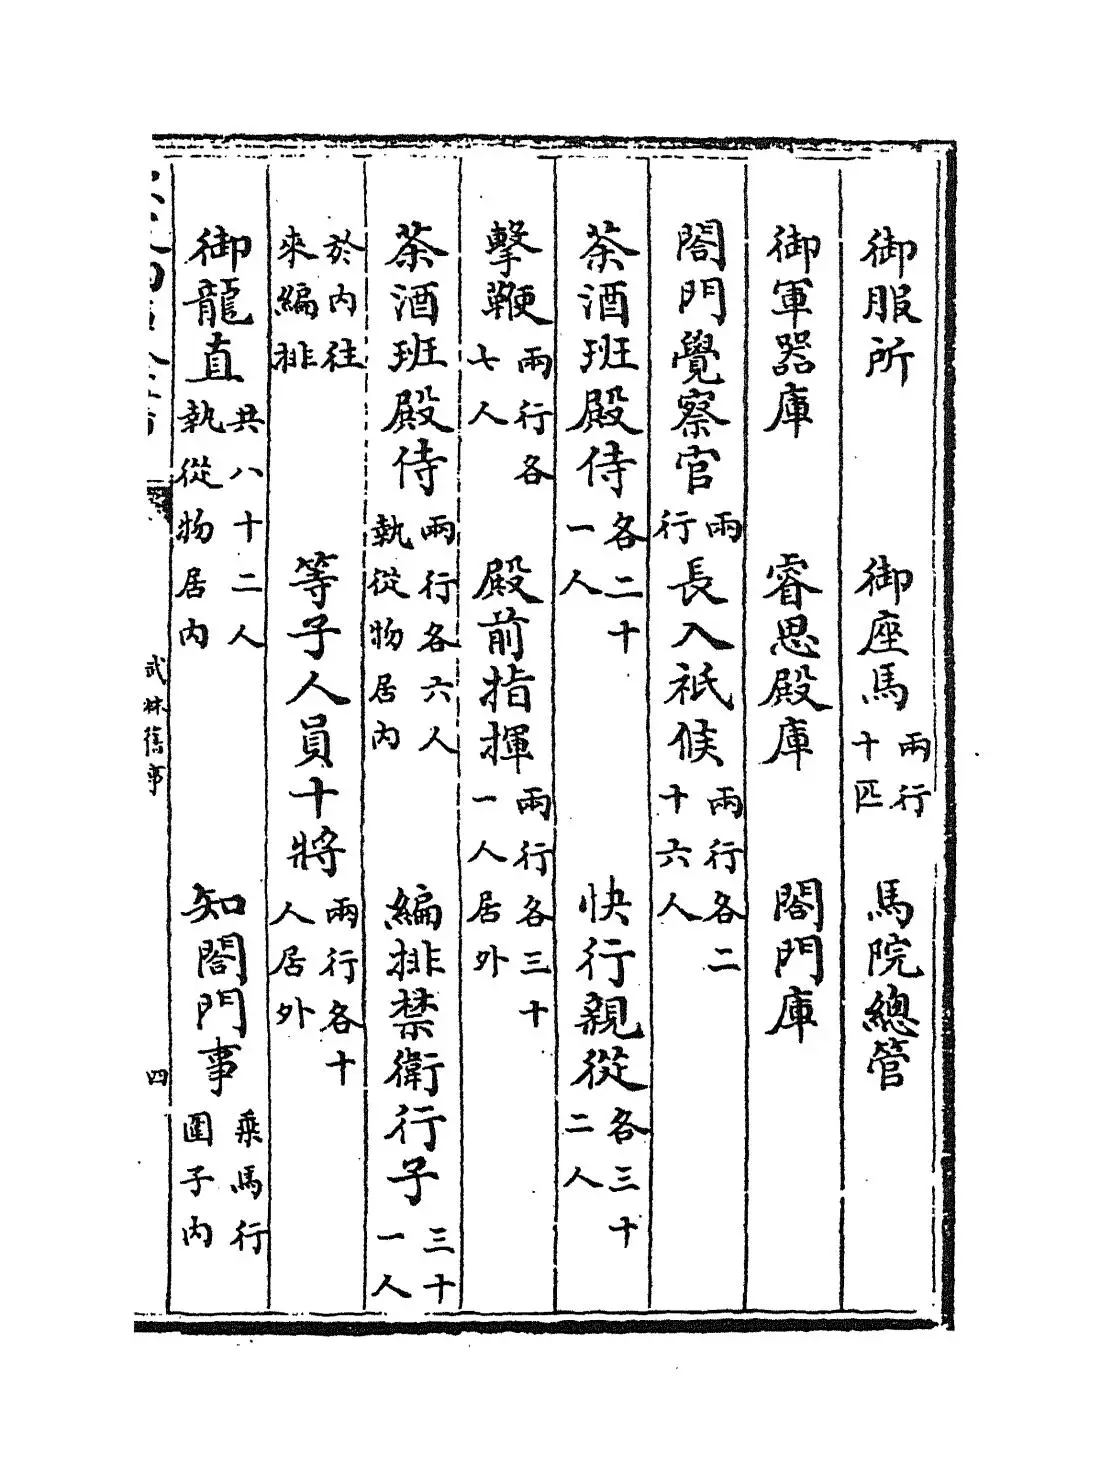 御服所　御座馬兩行十匹　馬院總管
御軍器庫　睿思殿庫　閤門庫
閤門覺察官兩行　長入祗候兩行各二十六人
茶酒班殿侍各二十一人　快行親從各三十二人
擊鞭兩行各七人　殿前指揮兩行各三十一人居外
茶酒班殿侍兩行各六人執從物居內　編排禁衛行子三十一人
於內往來編排　等子人員十將兩行各十人居外
御龍直共八十二人執從物居內　知閤門事乘馬行圍子內
武林舊事　四